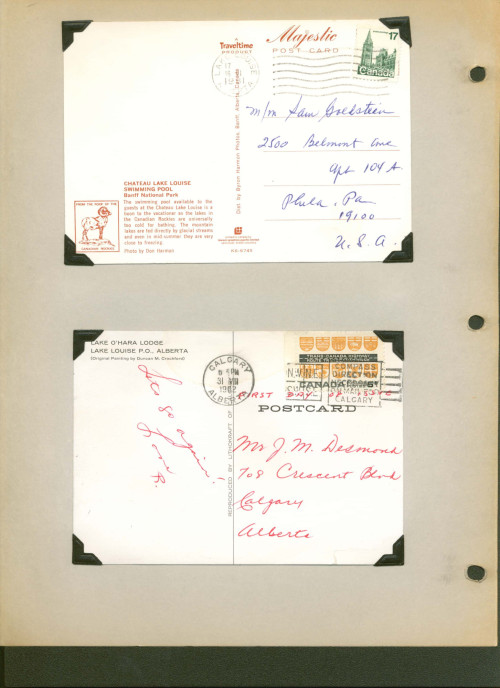 Traveltime
PRODUCT
Majestic
POST CARD
17
Canada
LAKE LOUISE
m/m Sam Goldstein
2500 Belmont Ave
Apt 104 A.
Phila, Pa
19100
U.S.A.
Dist. by Byron Harmon Photos, Banff, Alberta, Canada
CHATEAU LAKE LOUISE
SWIMMING POOL
Banff National Park
The swimming pool available to the
guests at the Chateau Lake Louise is a
boon to the vacationer as the lakes in
the Canadian Rockies are universally
too cold for bathing. The mountain
lakes are fed directly by glacial streams
and even in mid-summer they are very
close to freezing.
Photo by Don Harmon
CANADIAN ROCKIES
LAKE O'HARA LODGE
LAKE LOUISE P.O., ALBERTA
(Original Painting by Duncan M. Crockford)
Let's go again!
Love
R.
REPRODUCED BY LITHOCRAFT OF
CALGARY
PM
31 VIII
1962
ALBERTA
TRANS-CANADA HIGHWAY
CANADA 5¢
COMPASS
DIRECTION
CALGARY
FIRST DAY OF ISSUE
POSTCARD
Mr J. M. Desmond
708 Crescent Blvd
Calgary
Alberta